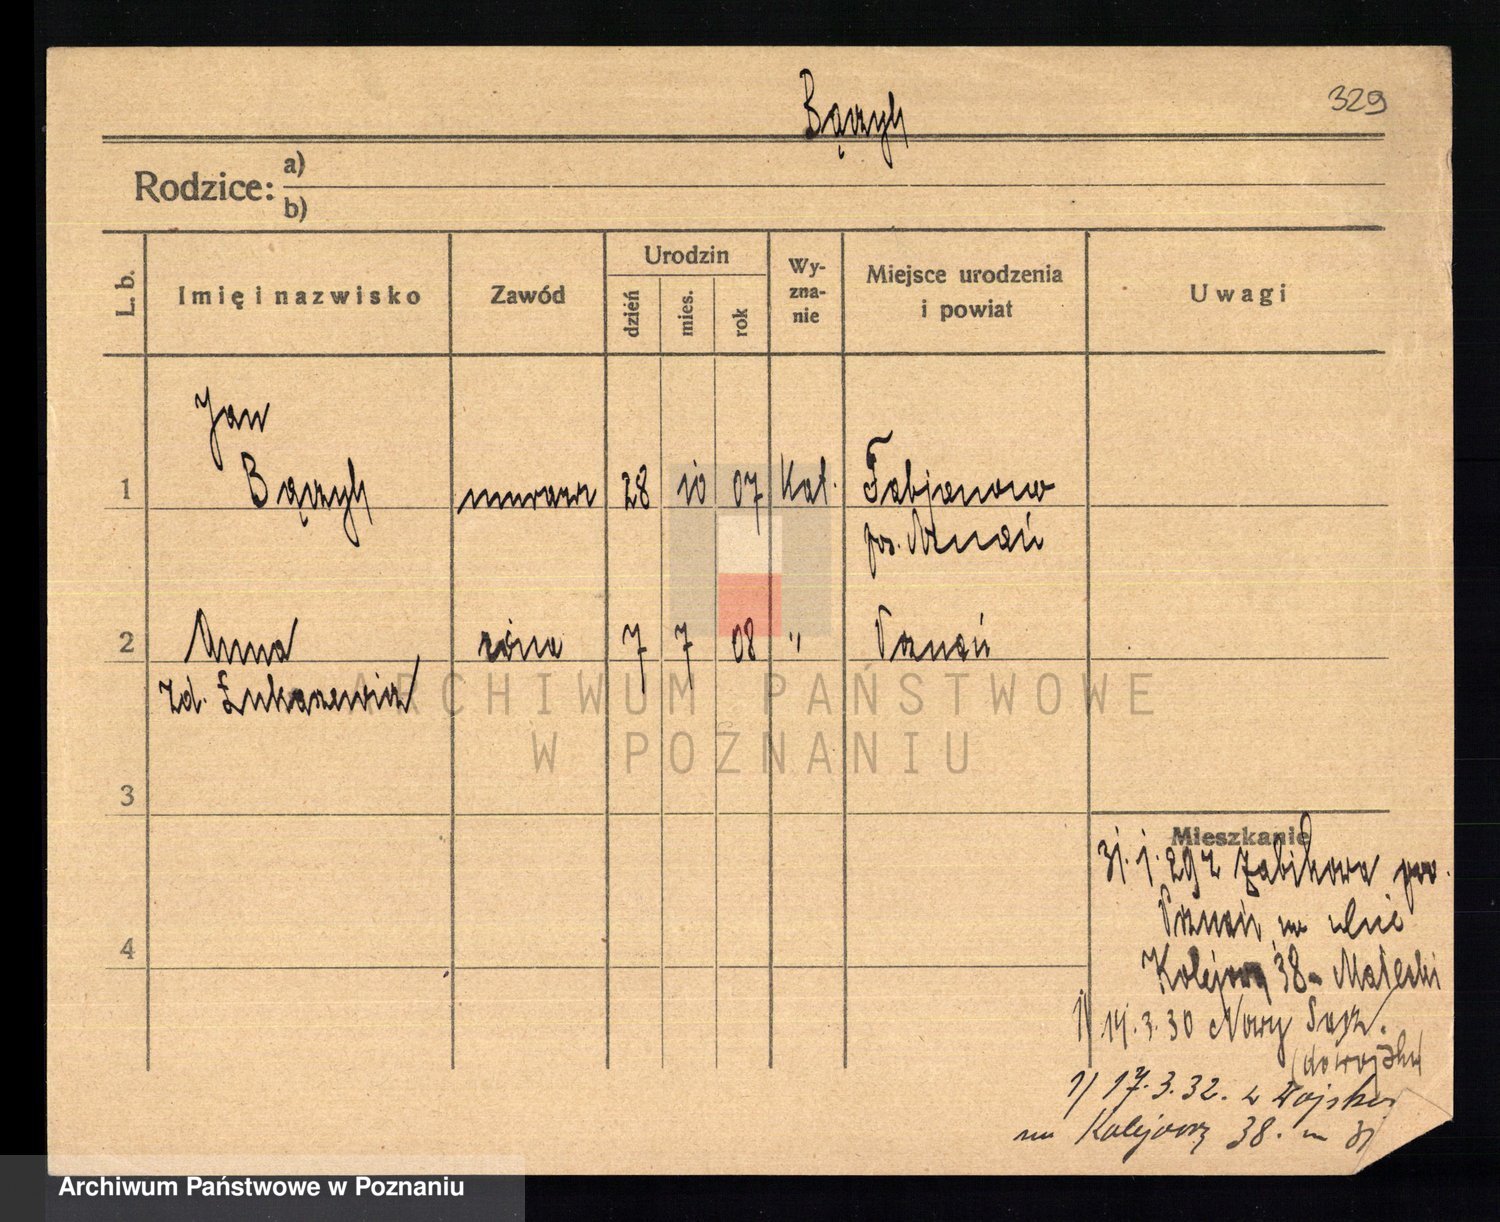 329
Bączyk
Rodzice: a)
b)
L. b.
Imię i nazwisko
Zawód
Urodzin
dzień
mies.
rok
Wy-
zna-
nie
Miejsce urodzenia
i powiat
Uwagi
Jan
1 Bączyk murarz 28 10 07 Kat. Fabjanowo
pow. Poznań
2 Anna żona 7 7 08 " Poznań
zd. Łukaszewicz
3
4
Mieszkanie
31.1.29 z Żabikowa pow.
Poznań na ulicę
Kolejową 38 - Małecki
1) 14.3.30 Nowy Sącz.
(do wojska)
1) 17.3.32. z wojska
na Kolejową 38.
ARCHIWUM PAŃSTWOWE
W POZNANIU
Archiwum Państwowe w Poznaniu